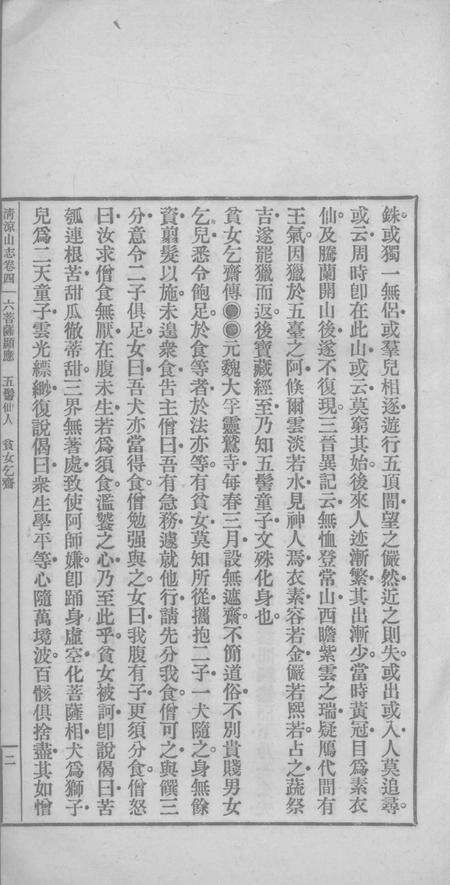 銖或獨一無侶或羣兒相逐遊行五頂間望之儼然近之則失或出或入人莫追尋
或云周時卽在此山或云莫窮其始後來人迹漸繁其出漸少當時黃冠目爲素衣
仙及騰蘭開山後遂不復現三晉異記云無恤登常山西瞻紫雲之瑞疑鴈代間有
王氣因獵於五臺之阿倏爾雲淡若水見神人焉衣素容若金儼若熙若占之蔬祭
吉遂罷獵而返後寶藏經至乃知五髻童子文殊化身也
貧女乞齋傳●●元魏大孚靈鷲寺每春三月設無遮齋不簡道俗不別貴賤男女
乞兒悉令飽足於食等者於法亦等有貧女莫知所從攜抱二子一犬隨之身無餘
資翦髮以施未遑衆食告主僧曰吾有急務遽就他行請先分我食僧可之與饌三
分意令二子俱足女曰吾犬亦當得食僧勉强與之女曰我腹有子更須分食僧怒
曰汝求僧食無厭在腹未生若爲須食濫饕之心乃至此乎貧女被訶卽說偈曰苦
瓠連根苦甜瓜徹蒂甜三界無著處致使阿師嫌卽踊身虛空化菩薩相犬爲獅子
兒爲二天童子雲光縹緲復說偈曰衆生學平等心隨萬境波百骸俱捨盡其如憎
清涼山志卷四 六菩薩顯應 五髻仙人 貧女乞齋 二